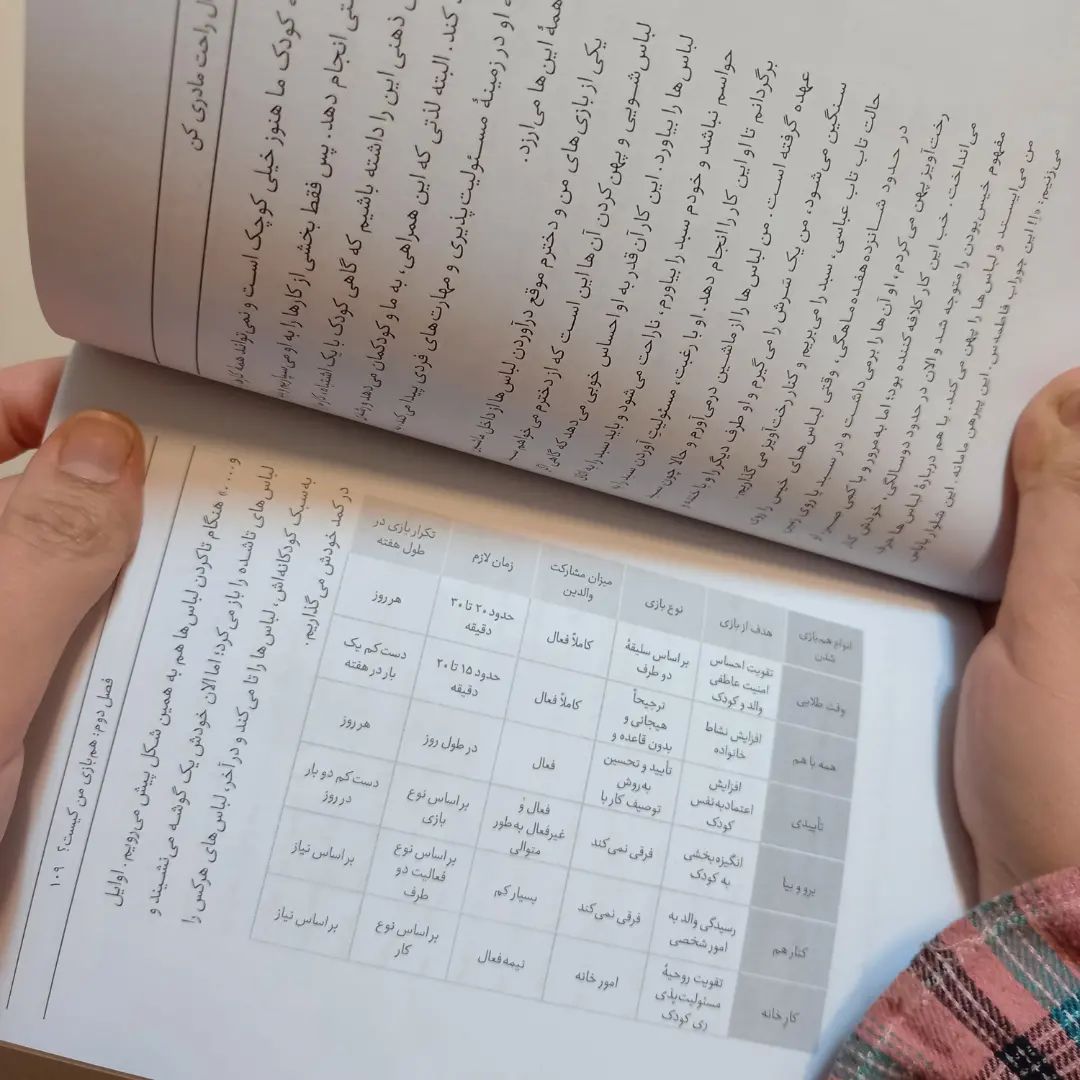 ل راحت مادری کن
کودک ما هنوز خیلی کوچک است و نمی‌تواند همهٔ
انجام دهد. پس فقط بخشی از کارها را به او می‌سپاریم
ذهنی این را داشته باشیم که گاهی کودک با یک اشتباه
کند. البته لذتی که این همراهی، به ما و کودکمان می‌دهد و
او در زمینهٔ مسئولیت‌پذیری و مهارت‌های فردی پیدا می‌کند،
همهٔ این‌ها می‌ارزد.
یکی از بازی‌های من و دخترم موقع درآوردن لباس‌ها از داخل
لباس‌شویی و پهن کردن آن‌ها این است که از دخترم می‌خواهم
لباس‌ها را بیاورد. این کار آن‌قدر به او احساس خوبی می‌دهد که گاهی
حواسم نباشد و خودم سبد را بیاورم، ناراحت می‌شود و باید سبد را به
برگردانم تا او این کار را انجام دهد. او با رغبت، مسئولیت آوردن سبد
عهده گرفته است. من لباس‌ها را از ماشین درمی‌آورم و حالا چون سبد
سنگین می‌شود، من یک سَرش را می‌گیرم و او طرف دیگر را و با
حالت تاب تاب عباسی، سبد را می‌بریم و کنار رخت‌آویز می‌گذاریم.
در حدود شانزده‌هفده‌ماهگی، وقتی لباس‌های خیس را روی
رخت‌آویز پهن می‌کردم، او آن‌ها را برمی‌داشت و در سبد یا روی زمین
می‌انداخت. خب این کار کلافه‌کننده بود؛ اما به‌مرور و با کمی صبر، او
مفهوم خیس بودن را متوجه شد و الان در حدود دوسالگی، خودش کنار
من می‌ایستد و لباس‌ها را پهن می‌کند. با هم دربارهٔ لباس‌ها حرف
می‌زنیم: «!! این جوراب فاطمه‌س. این پیرهن مامانه. این شلوار باباس
فصل دوم: هم‌بازی من کیست؟ ۱۰۹
و...» هنگام تا کردن لباس‌ها هم به همین شکل پیش می‌رویم. اوایل
لباس‌های تاشده را باز می‌کرد؛ اما الان خودش یک گوشه می‌نشیند و
به سبک کودکانه‌اش، لباس‌ها را تا می‌کند و در آخر، لباس‌های هرکس را
در کمد خودش می‌گذاریم.
انواع هم‌بازی شدن هدف از بازی نوع بازی میزان مشارکت والدین زمان لازم تکرار بازی در طول هفته
وقت طلایی تقویت احساس امنیت عاطفی والد و کودک بر اساس سلیقهٔ دو طرف کاملاً فعال حدود ۲۰ تا ۳۰ دقیقه هر روز
همه با هم افزایش نشاط خانواده ترجیحاً هیجانی و بدون قاعده و کاملاً فعال حدود ۱۵ تا ۲۰ دقیقه دست‌کم یک بار در هفته
تأییدی افزایش اعتمادبه‌نفس کودک تأیید و تحسین به روش توصیف کار با فعال در طول روز هر روز
برو و بیا انگیزه‌بخشی به کودک فرقی نمی‌کند فعال و غیرفعال به‌طور متوالی بر اساس نوع بازی دست‌کم دو بار در روز
کنار هم رسیدگی والد به امور شخصی فرقی نمی‌کند بسیار کم بر اساس نوع فعالیت دو طرف بر اساس نیاز
کار خانه تقویت روحیهٔ مسئولیت‌پذی ری کودک امور خانه نیمه‌فعال بر اساس نوع کار بر اساس نیاز